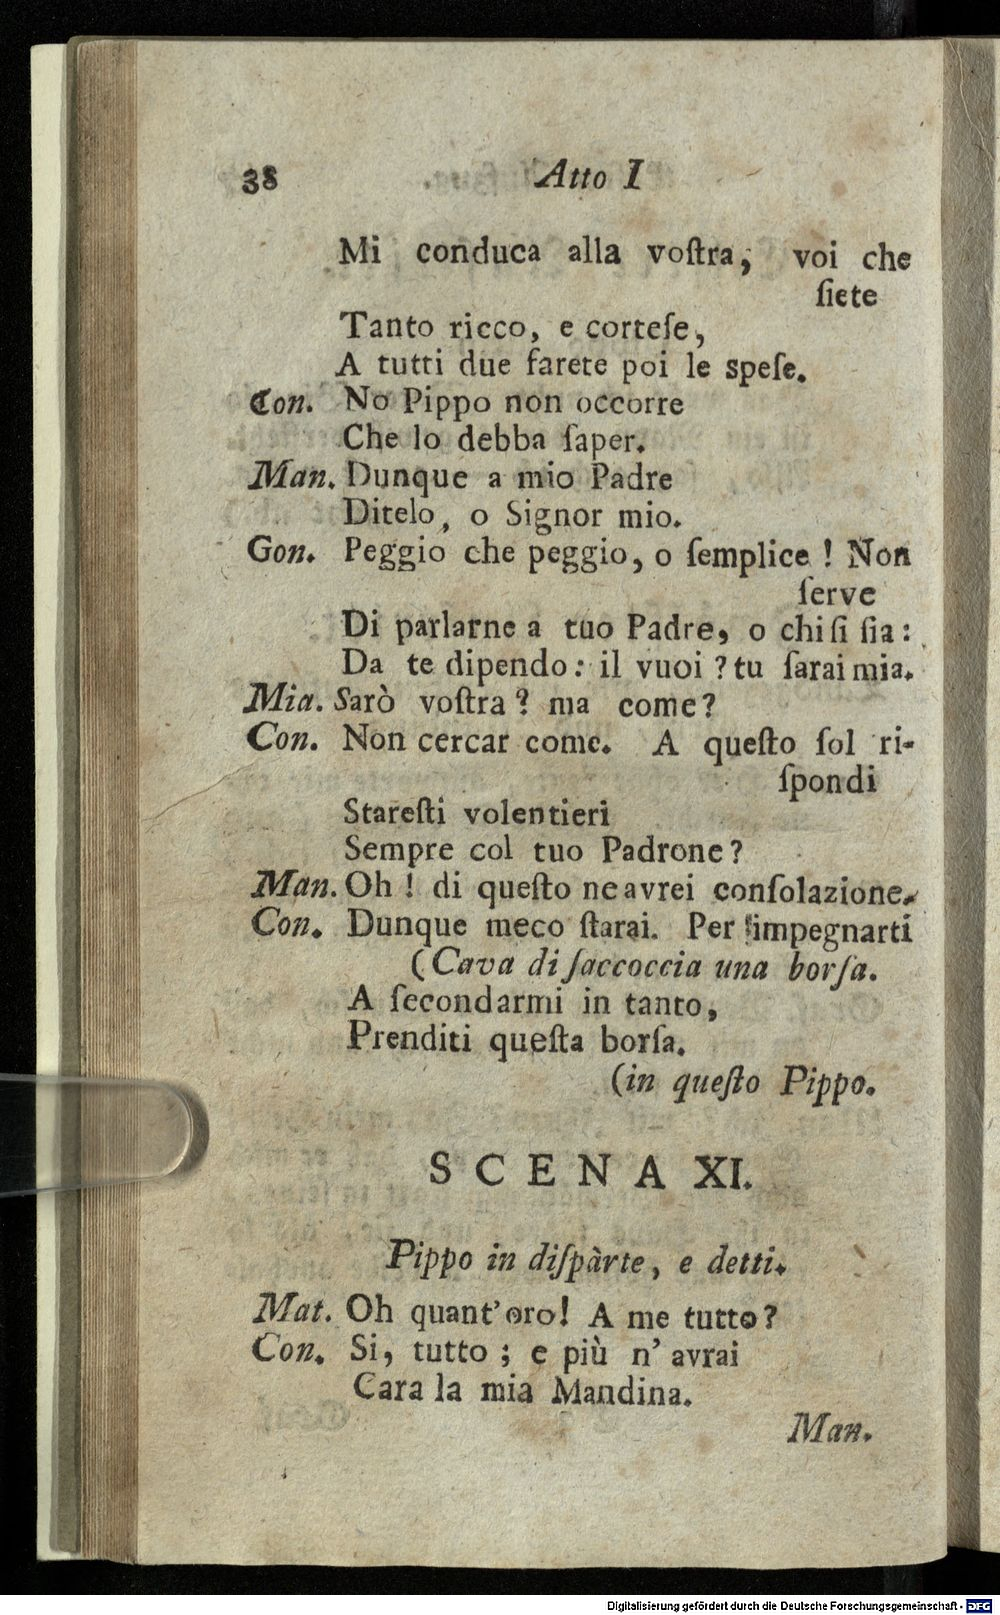 38 Atto I
Mi conduca alla voſtra, voi che
ſiete
Tanto ricco, e corteſe,
A tutti due farete poi le speſe.
Con. No Pippo non occorre
Che lo debba ſaper.
Man. Dunque a mio Padre
Ditelo, o Signor mio.
Gon. Peggio che peggio, o ſemplice! Non
ſerve
Di parlarne a tuo Padre, o chi ſi ſia:
Da te dipendo: il vuoi? tu ſarai mia.
Mia. Sarò voſtra? ma come?
Con. Non cercar come. A queſto ſol ri-
ſpondi
Stareſti volentieri
Sempre col tuo Padrone?
Man. Oh! di queſto ne avrei conſolazione.
Con. Dunque meco ſtarai. Per impegnarti
(Cava di ſaccoccia una borſa.
A ſecondarmi in tanto,
Prenditi queſta borſa.
(in queſto Pippo.
SCENA XI.
Pippo in diſpàrte, e detti.
Mat. Oh quant' oro! A me tutto?
Con. Si, tutto; e più n' avrai
Cara la mia Mandina.
Man.
Digitalisierung gefördert durch die Deutsche Forschungsgemeinschaft - DFG